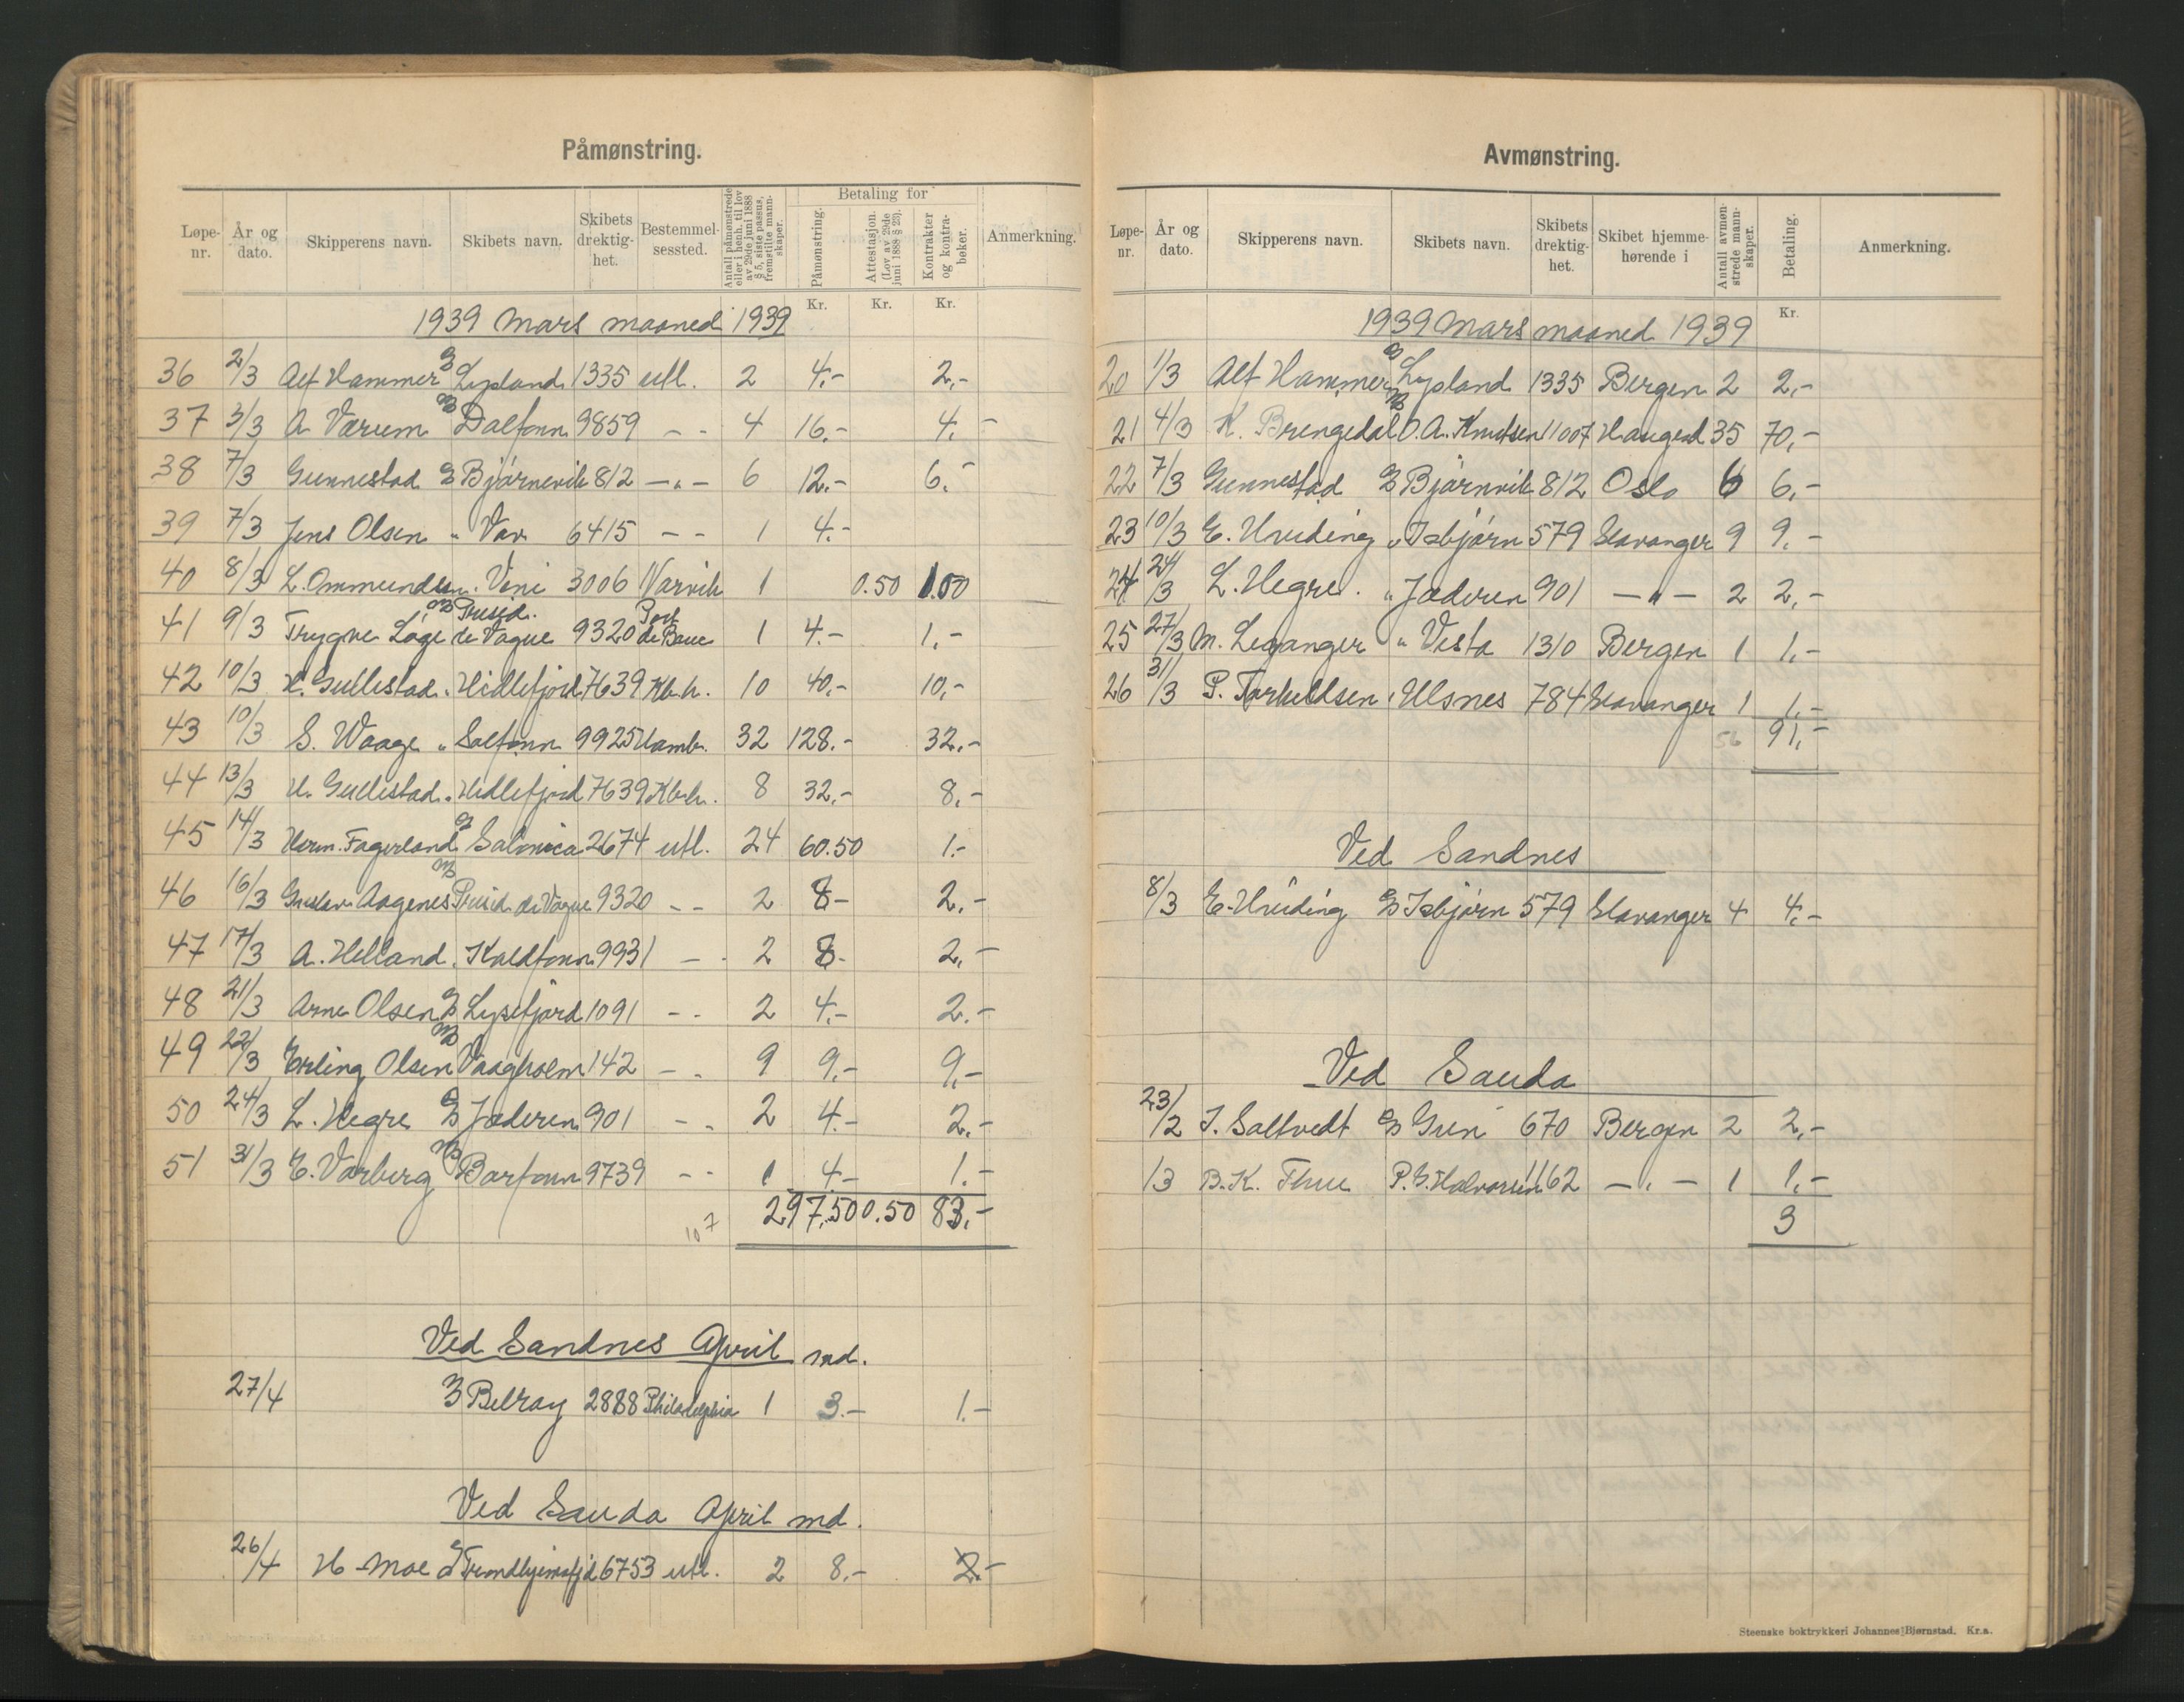 Påmønstring.
Løpe-nr. År og dato. Skipperens navn. Skibets navn. Skibets drektig-het. Bestemmel-sessted. Antall påmønstrede eller i henh. til lov av 29de juni 1888 § 5, siste passus, fremstilte mann-skaper. Betaling for Påmønstring. Attestasjon. (Lov av 29de juni 1888 § 23). Kontrakter og kontra-bøker. Anmerkning.
Kr. Kr. Kr.
1939 Mars maaned 1939
36 2/3 Alf Hammer Lysland 1335 utl. 2 4.- 2.-
37 3/3 A Værum Dalfonn 9859 - - 4 16.- 4.-
38 7/3 Gunnestad Bjørnevik 812 -"- 6 12.- 6.-
39 7/3 Jens Olsen " Var 6415 - - 1 4.-
40 8/3 L. Ommundsen " Veni 3006 Narvik 1 0.50 1.00
41 9/3 Trygve Låge Presid. de Vogue 9320 Port de Bouc 1 4.- 1.-
42 10/3 H. Gullestad " Hidlefjord 7639 Kbh. 10 40.- 10.-
43 10/3 S. Waage " Solfonn 9925 Hamb. 32 128.- 32.-
44 13/3 H. Gullestad " Hidlefjord 7639 Kbh. 8 32.- 8.-
45 14/3 Herm. Fagerland Salonica 2674 utl. 24 60.50 1.-
46 16/3 Gustav Aagenes Presid. de Vogue 9320 - - 2 8- 2.-
47 17/3 A. Helland " Kaldfonn 9931 - - 2 8- 2.-
48 21/3 Arne Olsen Lysefjord 1091 - - 2 4.- 2.-
49 22/3 Erling Olsen Vaagholm 142 - - 9 9.- 9.-
50 24/3 L. Hegre Jæderen 901 - - 2 4.- 2.-
51 31/3 E. Varberg Barfonn 9739 - - 1 4- 1.-
107 297.50 0.50 83.-
Ved Sandnes April md.
27/4 Belray 2888 Philadelphia 1 3.- 1.-
Ved Sauda April md.
26/4 H Moe Trondhjemsfjd 6753 utl. 2 8.- 2.-
Avmønstring.
Løpe-nr. År og dato. Skipperens navn. Skibets navn. Skibets drektig-het. Skibet hjemme-hørende i Antall avmøn-strede mann-skaper. Betaling. Anmerkning.
Kr.
1939 Mars maaned 1939
20 1/3 Alf Hammer Lysland 1335 Bergen 2 2.-
21 4/3 K. Brengedal O.A. Knudsen 11007 Haugesd 35 70.-
22 7/3 Gunnestad Bjørnvik 812 Oslo 6 6.-
23 10/3 E. Hveding " Isbjørn 579 Stavanger 9 9.-
24 24/3 L. Hegre. " Jæderen 901 -"- 2 2.-
25 27/3 M. Leganger " Vesta 1310 Bergen 1 1.-
26 31/3 P. Torkildsen " Ulsnes 784 Stavanger 1 1.-
56 91.-
Ved Sandnes
8/3 E. Hveding Isbjørn 579 Stavanger 4 4.-
Ved Sauda
23/2 J. Saltvedt Guri 670 Bergen 2 2.-
/3 B.K. Thue P.G. Halvorsen 1162 -"- 1 1.-
3
Steenske boktrykkeri Johannes Bjørnstad. Kr.a.